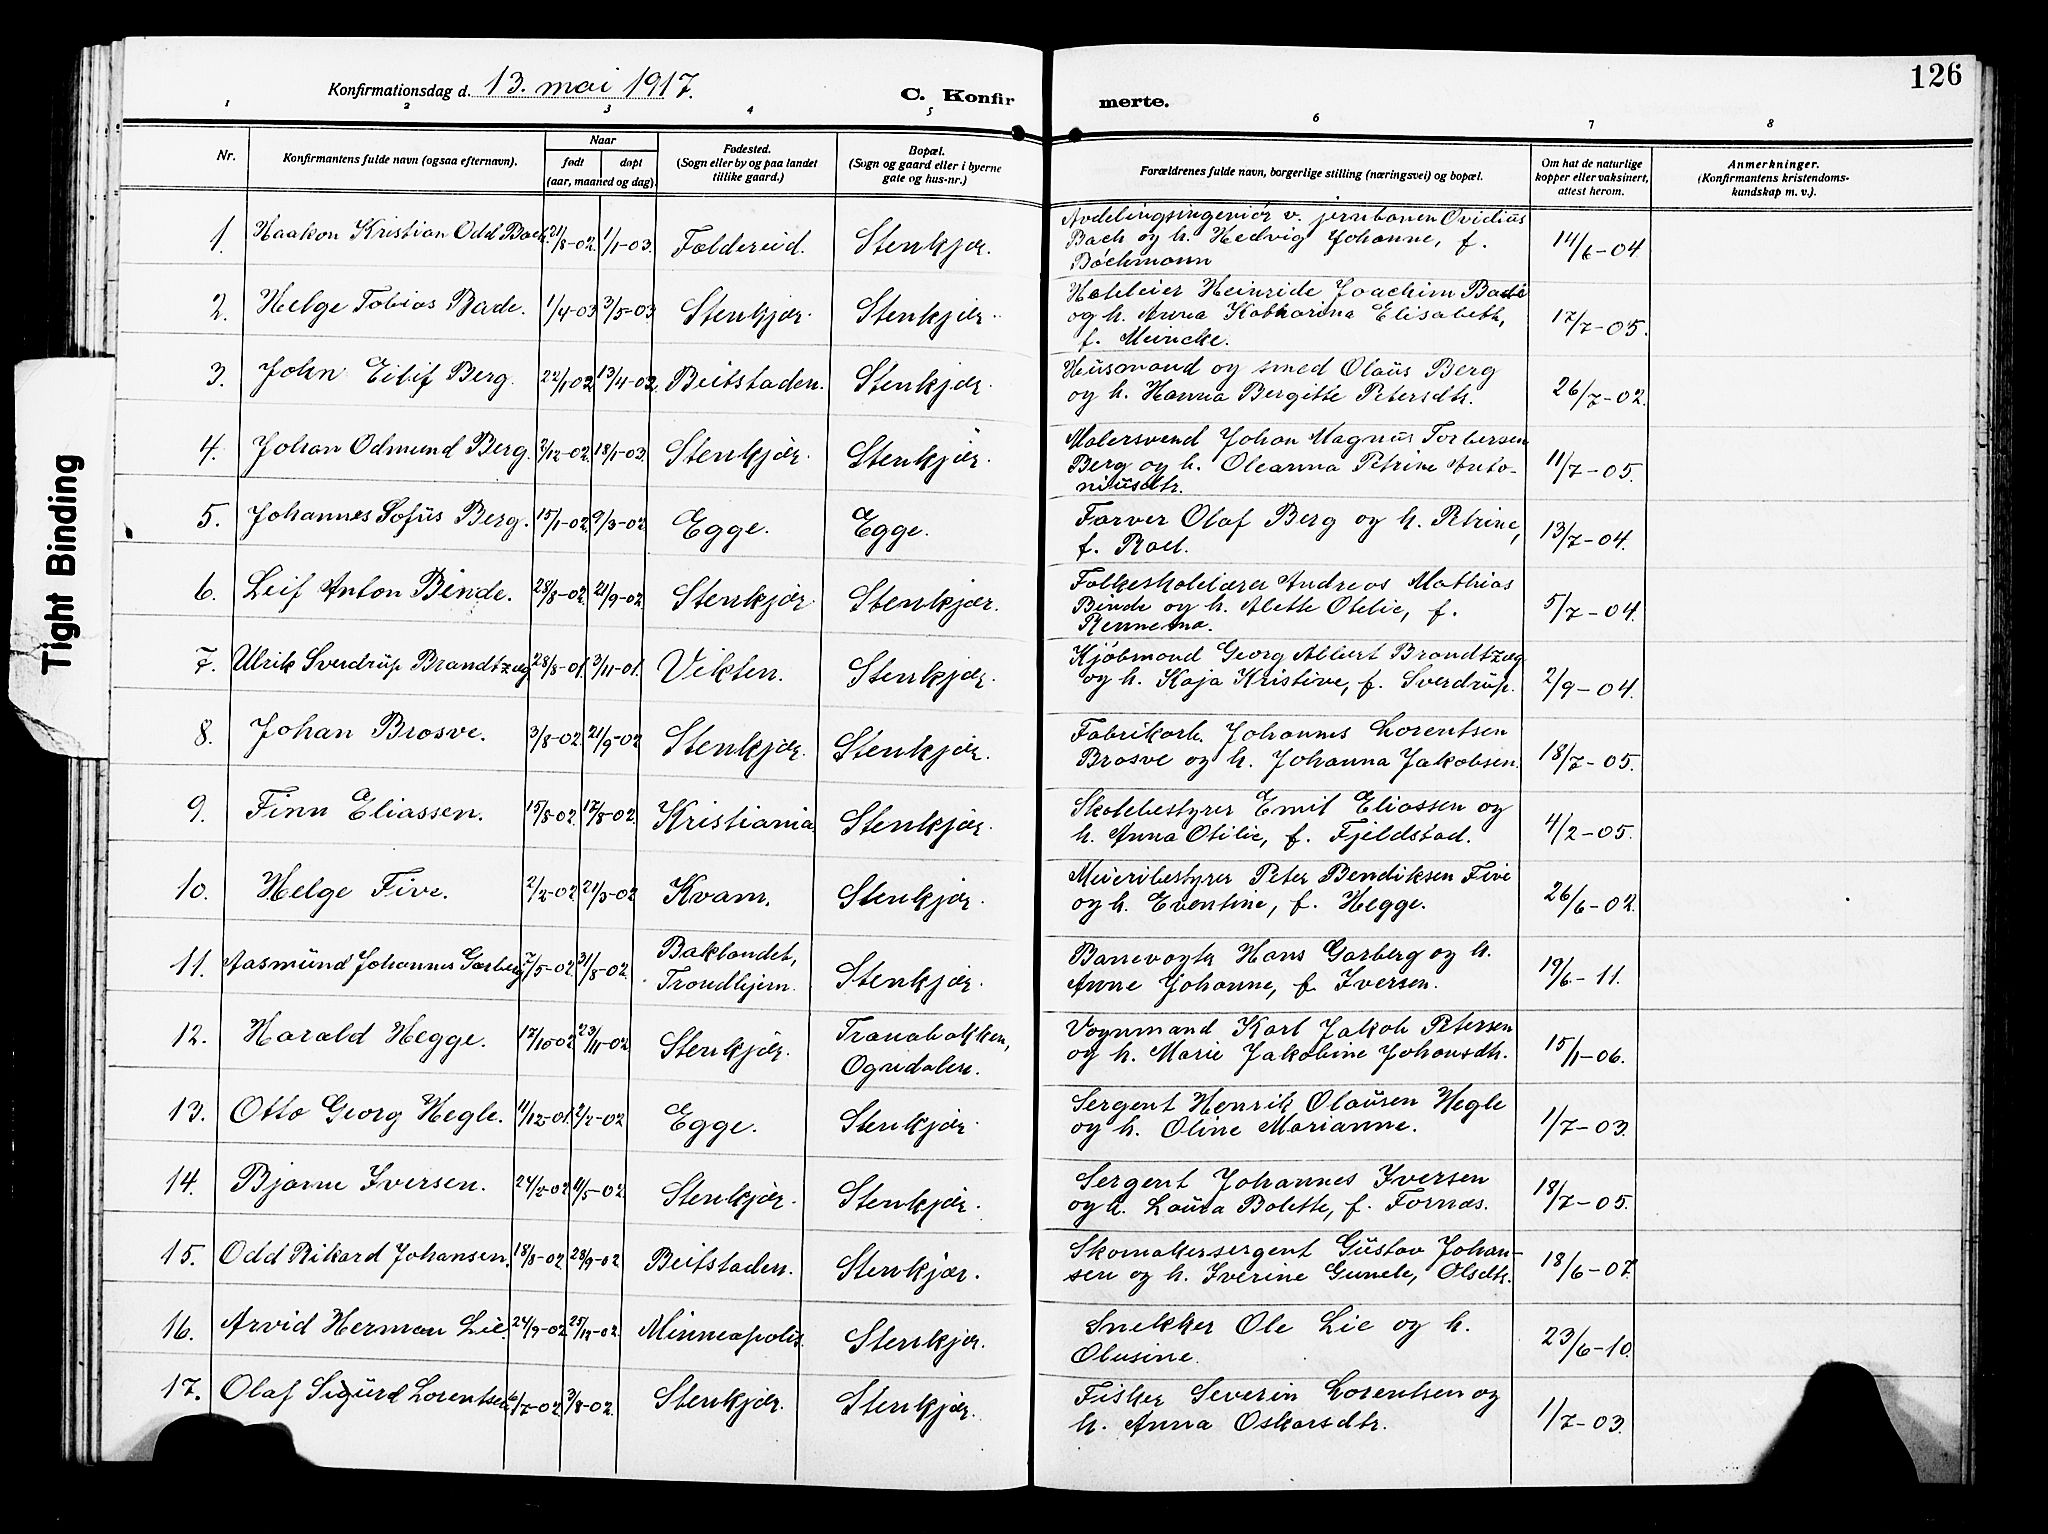 126
Konfirmationsdag d. 13. mai 1917.
C. Konfirmerte.
1 2 3 4 5 6 7 8
Nr.
Konfirmantens fulde navn (ogsaa efternavn).
Naar
født
døpt
(aar, maaned og dag).
Fødested.
(Sogn eller by og paa landet
tillike gaard.)
Bopæl.
(Sogn og gaard eller i byerne
gate og hus-nr.)
Forældrenes fulde navn, borgerlige stilling (næringsvei) og bopæl.
Om hat de naturlige
kopper eller vaksinert,
attest herom.
Anmerkninger.
(Konfirmantens kristendoms-
kundskap m. v.).
1. Haakon Kristian Odd Bach. 21/8-02. 1/1-03. Foldereid. Stenkjær. Avdelingsingeniør v. jernbanen Ovidius
Bach og h. Hedvig Johanne, f.
Bøchmann 14/6-04
2. Helge Tobias Bade. 1/4-03 3/5-03. Stenkjær. Stenkjær. Hoteleier Heinride Joachim Bade
og h. Anna Katharina Elisabeth,
f. Meincke. 17/7-05.
3. John Eilif Berg. 22/1-02 13/4-02. Beitstaden. Stenkjær. Husmand og smed Olaus Berg
og h. Hanna Bergitte Petersdtr. 26/7-02.
4. Johan Odmund Berg. 3/12-02. 18/1-03. Stenkjær. Stenkjær. Malersvend Johan Magnus Torbersen
Berg og h. Oleanna Petrine Anto-
niusdtr. 11/7-05.
5. Johannes Sofus Berg. 15/1-02. 9/3-02 Egge. Egge. Farver Olaf Berg og h. Petrine,
f. Roel. 13/7-04.
6. Leif Anton Binde. 28/8-02. 21/9-02 Stenkjær Stenkjær. Folkeskolelærer Andreas Mathias
Binde og h. Alette Otelie, f.
Rennemo. 5/7-04.
7. Ulrik Sverdrup Brandtzæg 28/8-01. 3/11-01. Vikten. Stenkjær. Kjøbmand Georg Albert Brandtzæg
og h. Kaja Kristine, f. Sverdrup. 2/9-04.
8. Johan Brosve. 3/8-02. 21/9-02 Stenkjær. Stenkjær. Fabrikarb. Johannes Lorentsen
Brosve og h. Johanna Jakobsen. 18/7-05.
9. Finn Eliassen. 15/5-02. 17/8-02. Kristiania Stenkjær. Skolebestyrer Emil Eliassen og
h. Anna Otilie, f. Fjeldstad. 4/2-05.
10. Helge Five. 2/2-02 21/3-02 Kvam. Stenkjær. Meieribestyrer Peter Bendiksen Five
og h. Eventine, f. Hegge. 26/6-02.
11. Aasmund Johannes Garberg 7/5-02. 31/8-02. Baklandet,
Trondhjem. Stenkjær. Banevogter Hans Garberg og h.
Anne Johanne, f. Iversen. 19/6-11.
12. Harald Hegge. 17/10-02 23/11-02. Stenkjær. Tranabakken,
Ogndalen. Vognmand Karl Jakob Petersen
og h. Marie Jakobine Johansdtr. 15/1-06.
13. Otto Georg Hegle. 11/12-01. 2/2-02 Egge. Stenkjær. Sergent Henrik Olausen Hegle
og h. Oline Marianne. 1/7-03.
14. Bjarne Iversen. 24/2-02. 11/5-02. Stenkjær. Stenkjær. Sergent Johannes Iversen
og h. Laura Bolette, f. Fornæs. 18/7-05.
15. Odd Rikard Johansen. 18/8-02. 28/9-02 Beitstaden. Stenkjær. Skomakersergent Gustav Johan-
sen og h. Iverine Gunele, Olsdtr. 18/6-07.
16. Arvid Herman Lie. 24/9-02. 25/12-02. Minneapolis. Stenkjær. Snekker Ole Lie og h.
Olusine. 23/6-10.
17. Olaf Sigurd Lorentsen 6/7-02. 3/8-02. Stenkjær. Stenkjær. Fisker Severin Lorentsen og
h. Anna Oskarsdtr. 1/7-03.
Tight Binding